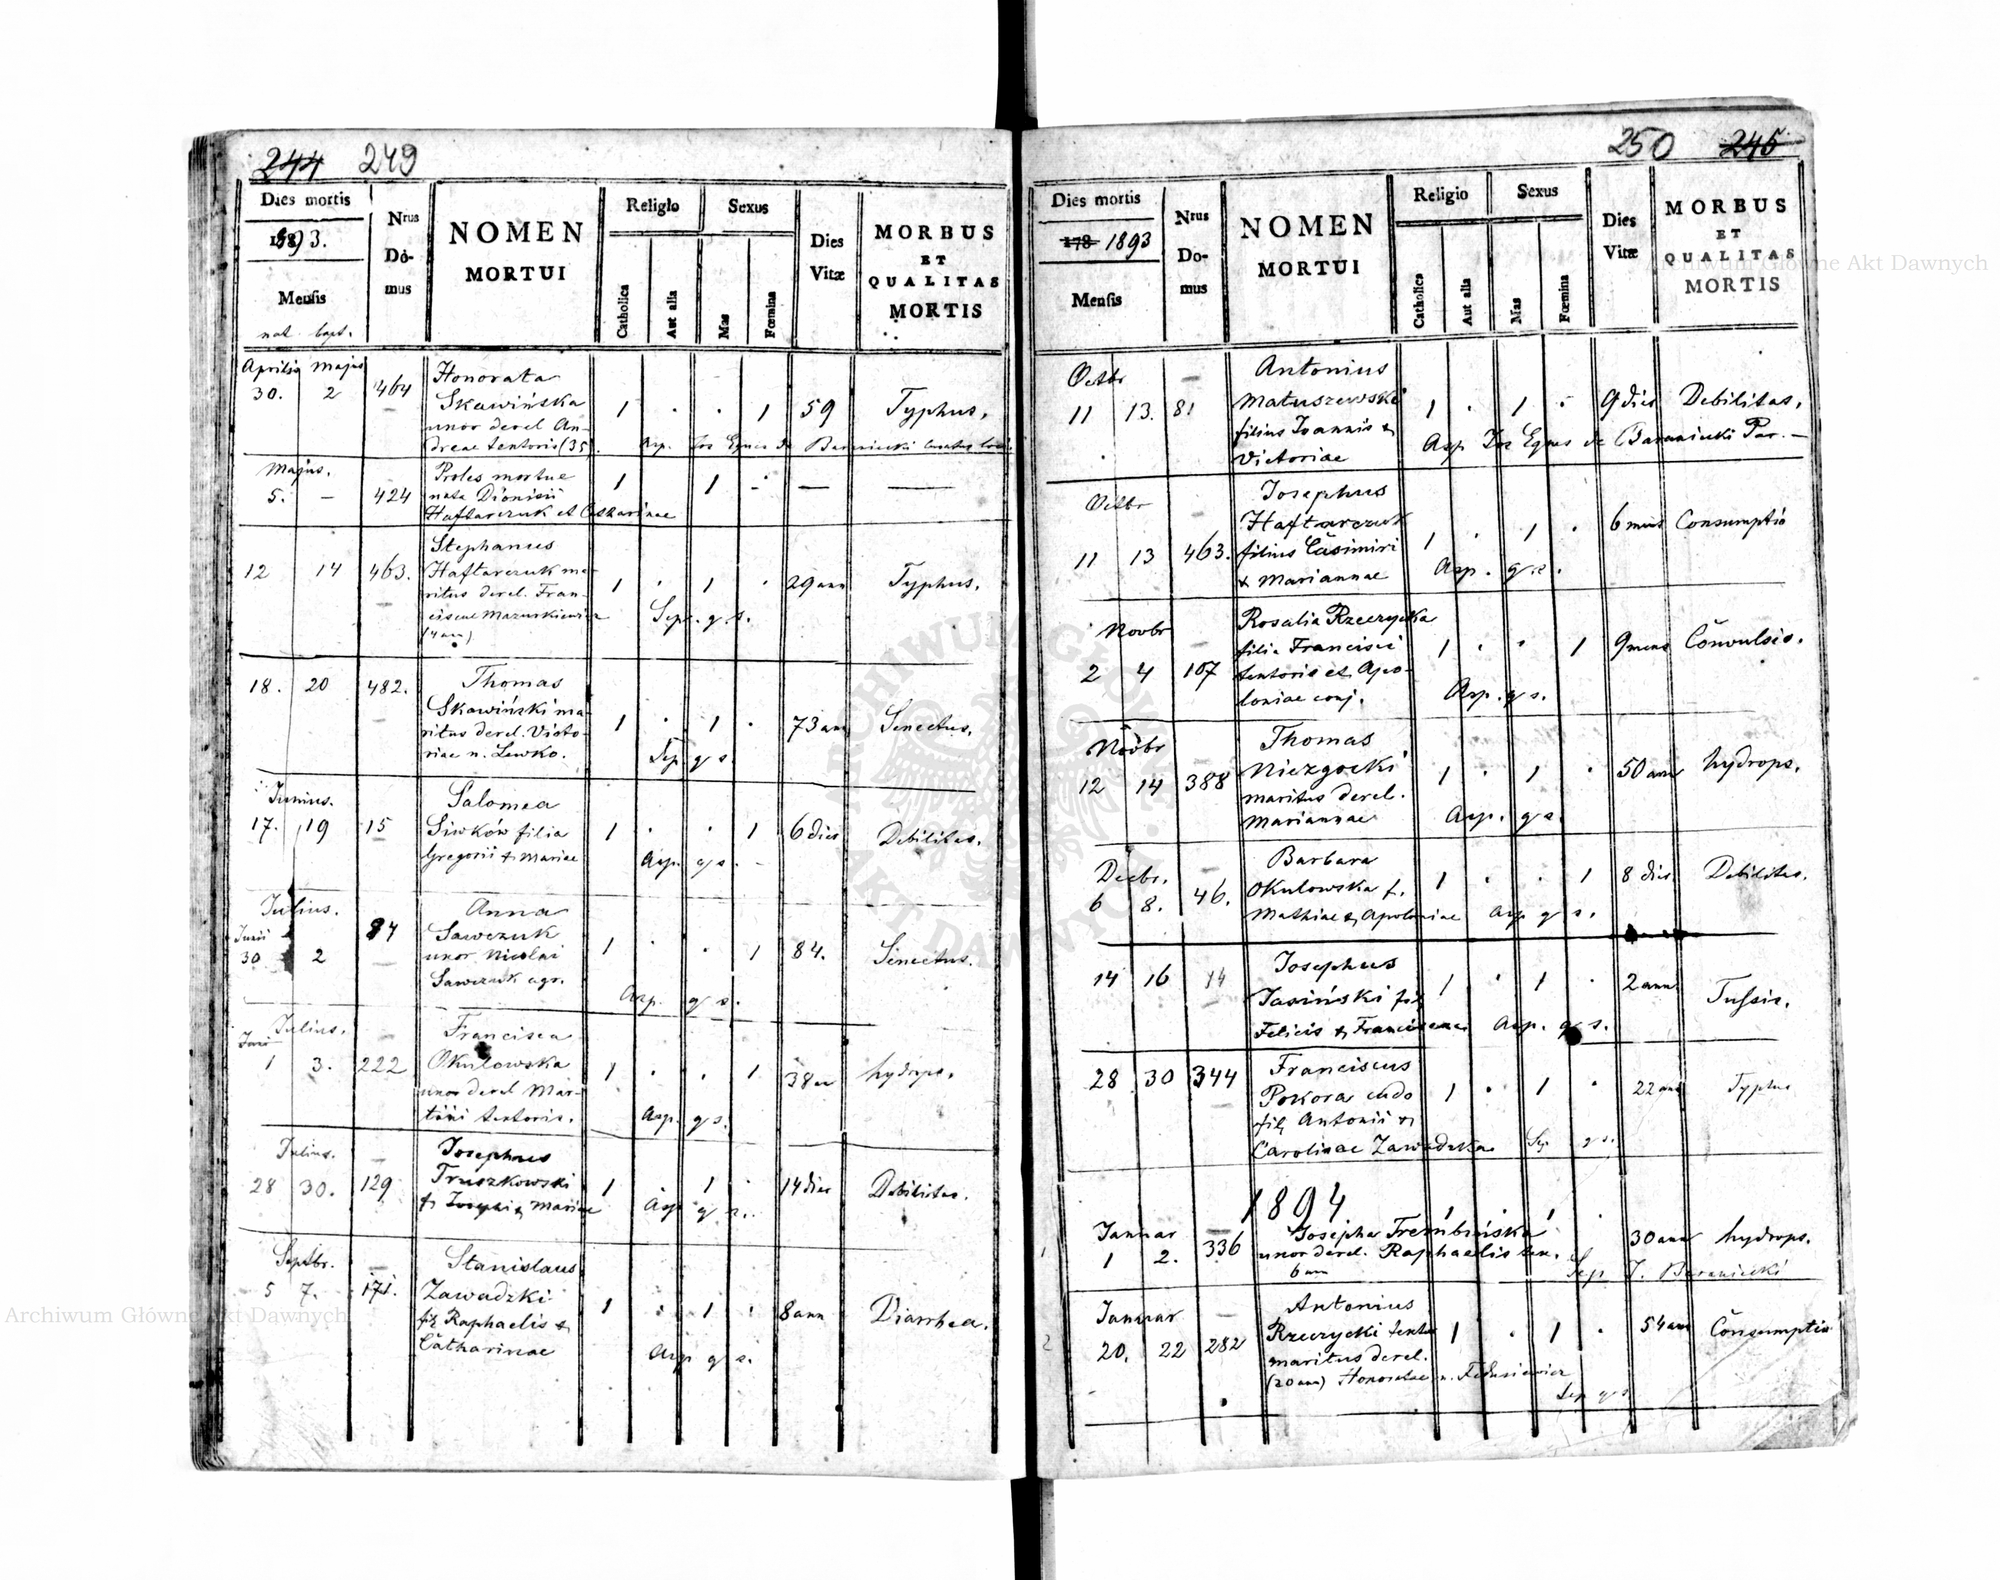 244 249
Dies mortis
1893.
Mensis
nat. bapt.
Nrus
Do-
mus
NOMEN
MORTUI
Religio
Catholica
Aut alia
Sexus
Mas
Fœmina
Dies
Vitæ
MORBUS
ET
QUALITAS
MORTIS
Aprilis Majus
30. 2 464
Honorata
Skawińska
uxor derel An-
dreae tentoris (35)
1 . . 1 59 Typhus.
Asp. Jos Eques de Baraniecki
Majus.
5. – 424
Proles mortue
nata Dionisii
Haftarczuk et Catharinae
1 1 – — —
12 14 463.
Stephanus
Haftarczuk ma-
ritus derel. Fran-
ciscae Mazurkiewicz
(4 ann)
1 . 1 . 29 ann Typhus.
Sep. g s.
18. 20 482.
Thomas
Skawiński ma-
ritus derel. Victo-
riae n. Lewko.
1 . 1 . 73 ann Senectus.
Sep. g s.
Junius.
17. 19 15
Salomea
Siwków filia
Gregorii & Mariae
1 . . 1 6 dies Debilitas.
Asp. g s.
Julius.
Junii
30 2 84
Anna
Sawczuk
uxor Nicolai
Sawczuk agr.
1 . . 1 84. Senectus.
Asp. g s.
Julius.
1 3. 222
Francisca
Okulowska
uxor derel Mar-
tini tentoris.
1 . . 1 38 hydrops.
Asp. g s.
Julius.
28 30. 129
Josephus
Truszkowski
f. Josephi & Mariae
1 1 . 14 dies Debilitas.
Asp g s.
Septbr.
5 7. 171.
Stanislaus
Zawadzki
fil Raphaelis &
Catharinae
1 . 1 . 8 ann Diarrhea.
Asp g s.
250 245
Dies mortis
178 1893
Mensis
Nrus
Do-
mus
NOMEN
MORTUI
Religio
Catholica
Aut alia
Sexus
Mas
Fœmina
Dies
Vitæ
MORBUS
ET
QUALITAS
MORTIS
Octbr
11 13. 81
Antonius
Matuszewski
filius Joannis &
Victoriae
1 . 1 . 9 dies Debilitas.
Asp Jos Eques de Baraniecki Par. –
Octbr
11 13 463.
Josephus
Haftarczuk
filius Casimiri
& Mariannae
1 . 1 . 6 mens Consumptio
Asp. g s.
Novbr
2 4 107
Rosalia Rzeczycka
filia Francisci
tentoris et Apo-
loniae conj.
1 . . 1 9 mens Convulsio.
Asp. g s.
Novbr
12 14 388
Thomas
Niezgocki
maritus derel.
Mariannae
1 . 1 . 50 ann hydrops.
Asp. g s.
Decbr.
6 8. 46.
Barbara
Okulowska f.
Mathiae & Apoloniae
1 . . 1 8 dies Debilitas.
Asp g s.
14 16 14
Josephus
Jasiński fil
Felicis & Franciscae
1 . 1 . 2 ann Tussis.
Asp. g s.
28 30 344
Franciscus
Pokora
fil Antonii &
Carolinae Zawadzka
1 . 1 . 22 ann Typhus
Sep g s.
1894
Januar
1 1 2. 336
Josepha Trembińska
uxor derel. Raphaelis ten.
6 ann
1 . . 1 30 ann hydrops.
Sep J. Baraniecki
Januar
2 20. 22 282
Antonius
Rzeczycki tentor
maritus derel.
(20 ann) Honoratae n. Fedusiewicz
1 . 1 . 54 ann Consumptio
Sep g s
Archiwum Główne Akt Dawnych
Archiwum Główne Akt Dawnych
ARCHIWUM GŁÓWNE
AKT DAWNYCH